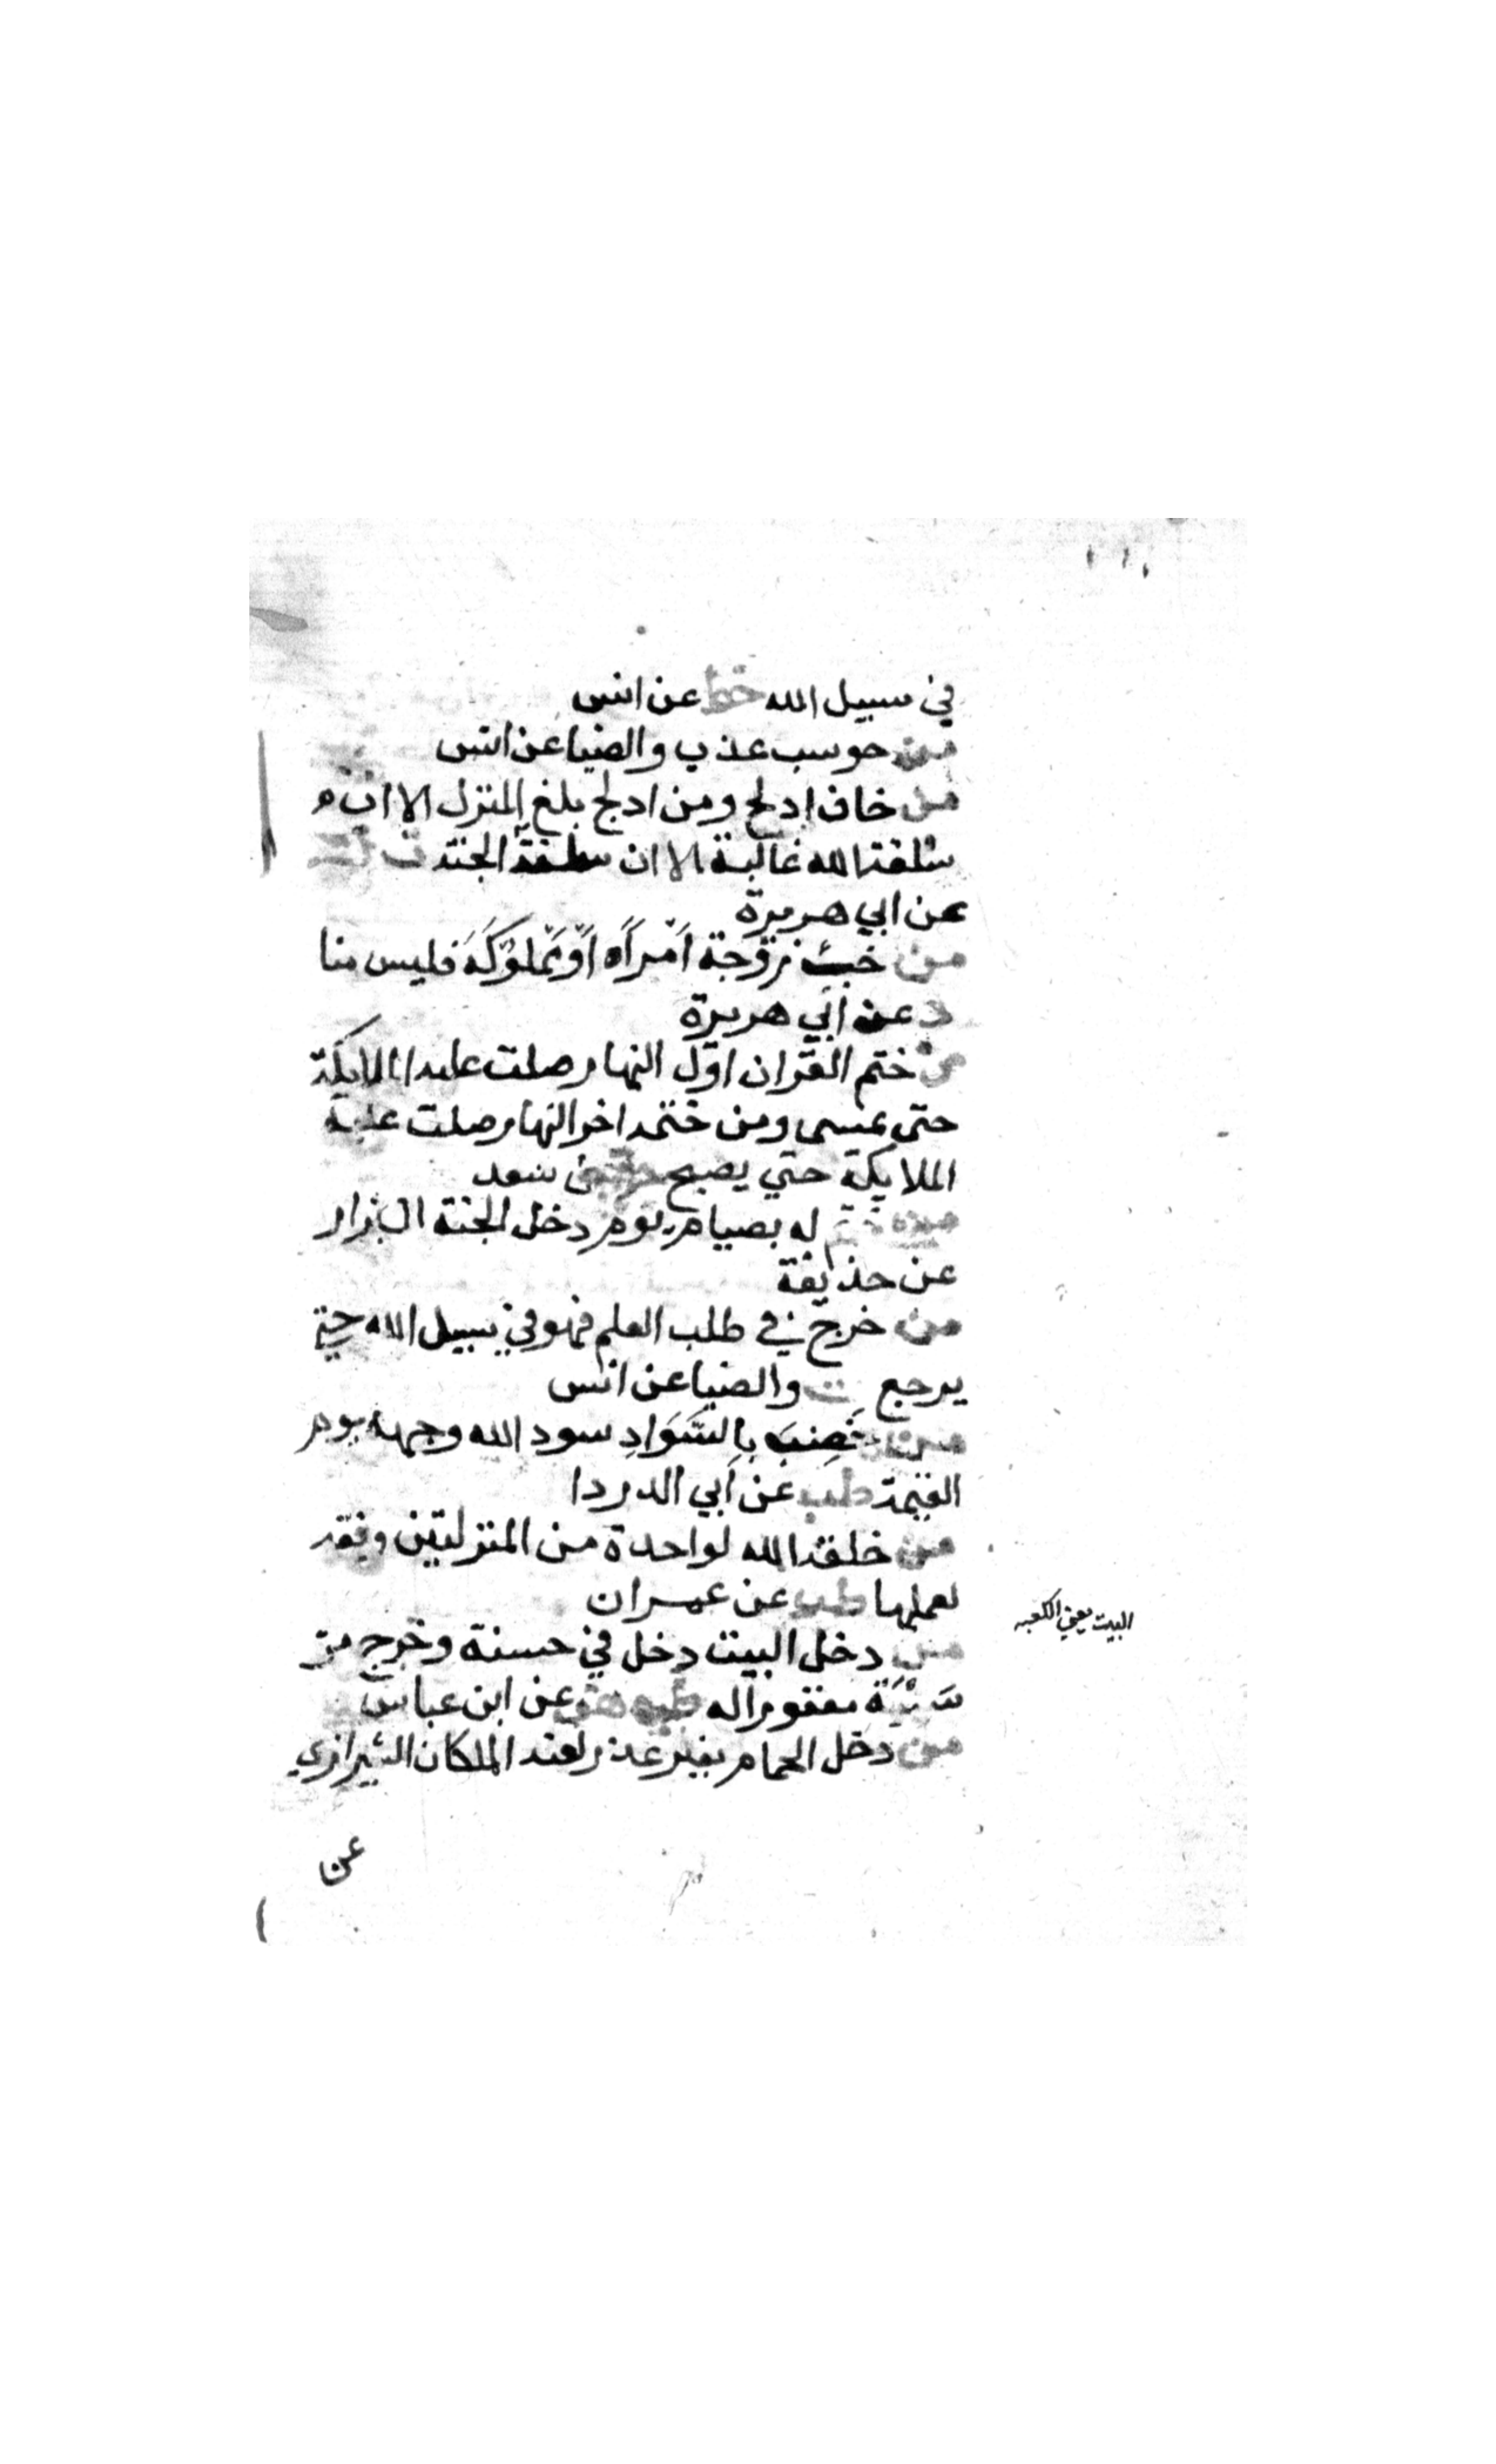 في سبيل الله خط عن انس
من حوسب عذب والضيا عن انس
من خاف ادلج ومن ادلج بلغ المنزل الا ان
سلعة الله غالية الا ان سلعة الجنة ت
عن ابي هريرة
من خبب زوجة امراه او مملوكه فليس منا
د عن ابي هريرة
من ختم القران اول النهار صلت عليه الملايكة
حتى يمسى ومن ختمه اخر النهار صلت عليه
الملايكة حتي يصبح عن سعد
من ختم له بصيام يوم دخل الجنة البزار
عن حذيفة
من خرج في طلب العلم فهو في سبيل الله حتي
يرجع ت والضيا عن انس
من خَضِبَ بِالسَّوَادِ سود الله وجهه يوم
القيمة طب عن أبي الدردا
من خلقه الله لواحدة من المنزلتين وفقه
لعملها طب عن عمران
البيت يعني الكعبه
من دخل البيت دخل في حسنة وخرج من
سيئة مغفورا له طب هق عن ابن عباس
من دخل الحمام بغير عذر لعنه الملكان الشيرازي
عن